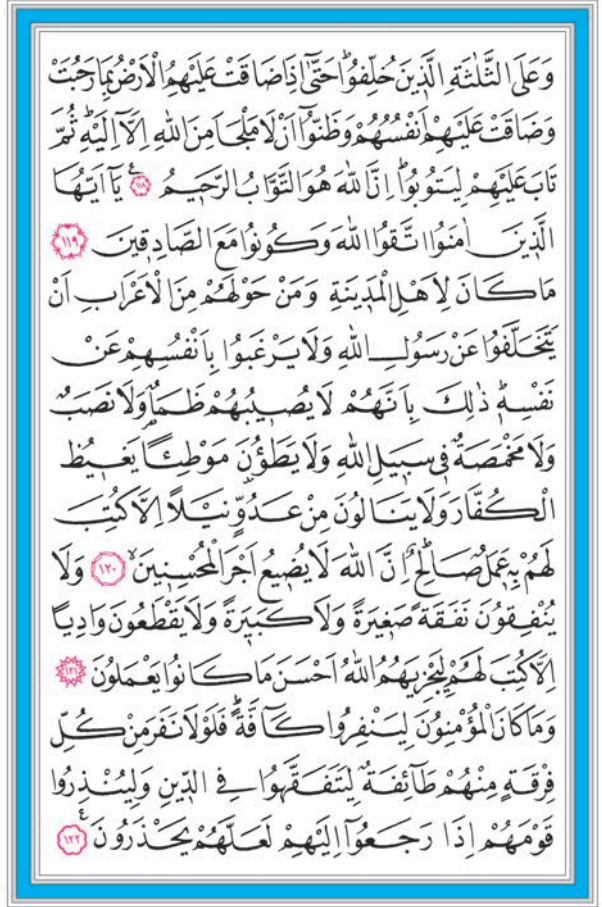 وَعَلَى الثَّلٰثَةِ الَّذ۪ينَ خُلِّفُواۜ حَتّٰٓى اِذَا ضَاقَتْ عَلَيْهِمُ الْاَرْضُ بِمَا رَحُبَتْ
وَضَاقَتْ عَلَيْهِمْ اَنْفُسُهُمْ وَظَنُّٓوا اَنْ لَا مَلْجَاَ مِنَ اللّٰهِ اِلَّٓا اِلَيْهِۜ ثُمَّ
تَابَ عَلَيْهِمْ لِيَتُوبُواۜ اِنَّ اللّٰهَ هُوَ التَّوَّابُ الرَّح۪يمُ ﴿١١٨﴾ يَٓا اَيُّهَا
الَّذ۪ينَ اٰمَنُوا اتَّقُوا اللّٰهَ وَكُونُوا مَعَ الصَّادِق۪ينَ ﴿١١٩﴾
مَا كَانَ لِاَهْلِ الْمَد۪ينَةِ وَمَنْ حَوْلَهُمْ مِنَ الْاَعْرَابِ اَنْ
يَتَخَلَّفُوا عَنْ رَسُولِ اللّٰهِ وَلَا يَرْغَبُوا بِاَنْفُسِهِمْ عَنْ
نَفْسِه۪ۜ ذٰلِكَ بِاَنَّهُمْ لَا يُص۪يبُهُمْ ظَمَاٌ وَلَا نَصَبٌ
وَلَا مَخْمَصَةٌ ف۪ي سَب۪يلِ اللّٰهِ وَلَا يَطَؤُ۫نَ مَوْطِئًا يَغ۪يظُ
الْكُفَّارَ وَلَا يَنَالُونَ مِنْ عَدُوٍّ نَيْلًا اِلَّا كُتِبَ
لَهُمْ بِه۪ عَمَلٌ صَالِحٌۜ اِنَّ اللّٰهَ لَا يُض۪يعُ اَجْرَ الْمُحْسِن۪ينَۙ ﴿١٢٠﴾ وَلَا
يُنْفِقُونَ نَفَقَةً صَغ۪يرَةً وَلَا كَب۪يرَةً وَلَا يَقْطَعُونَ وَادِيًا
اِلَّا كُتِبَ لَهُمْ لِيَجْزِيَهُمُ اللّٰهُ اَحْسَنَ مَا كَانُوا يَعْمَلُونَ ﴿١٢١﴾
وَمَا كَانَ الْمُؤْمِنُونَ لِيَنْفِرُوا كَٓافَّةًۜ فَلَوْلَا نَفَرَ مِنْ كُلِّ
فِرْقَةٍ مِنْهُمْ طَٓائِفَةٌ لِيَتَفَقَّهُوا فِي الدّ۪ينِ وَلِيُنْذِرُوا
قَوْمَهُمْ اِذَا رَجَعُٓوا اِلَيْهِمْ لَعَلَّهُمْ يَحْذَرُونَ ﴿١٢٢﴾